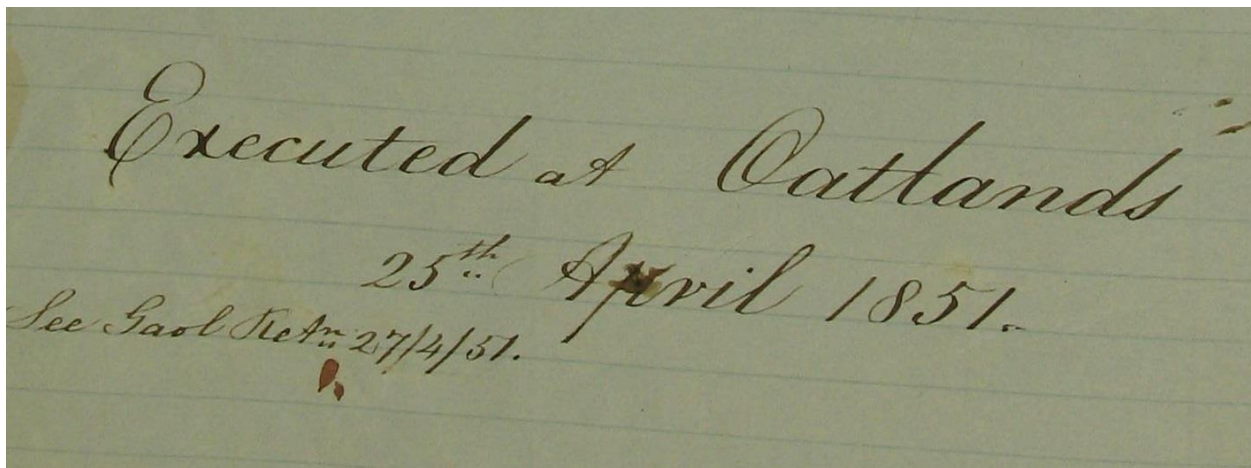 Executed at Oatlands
25th April 1851.
See Gaol Retn 27/4/51.